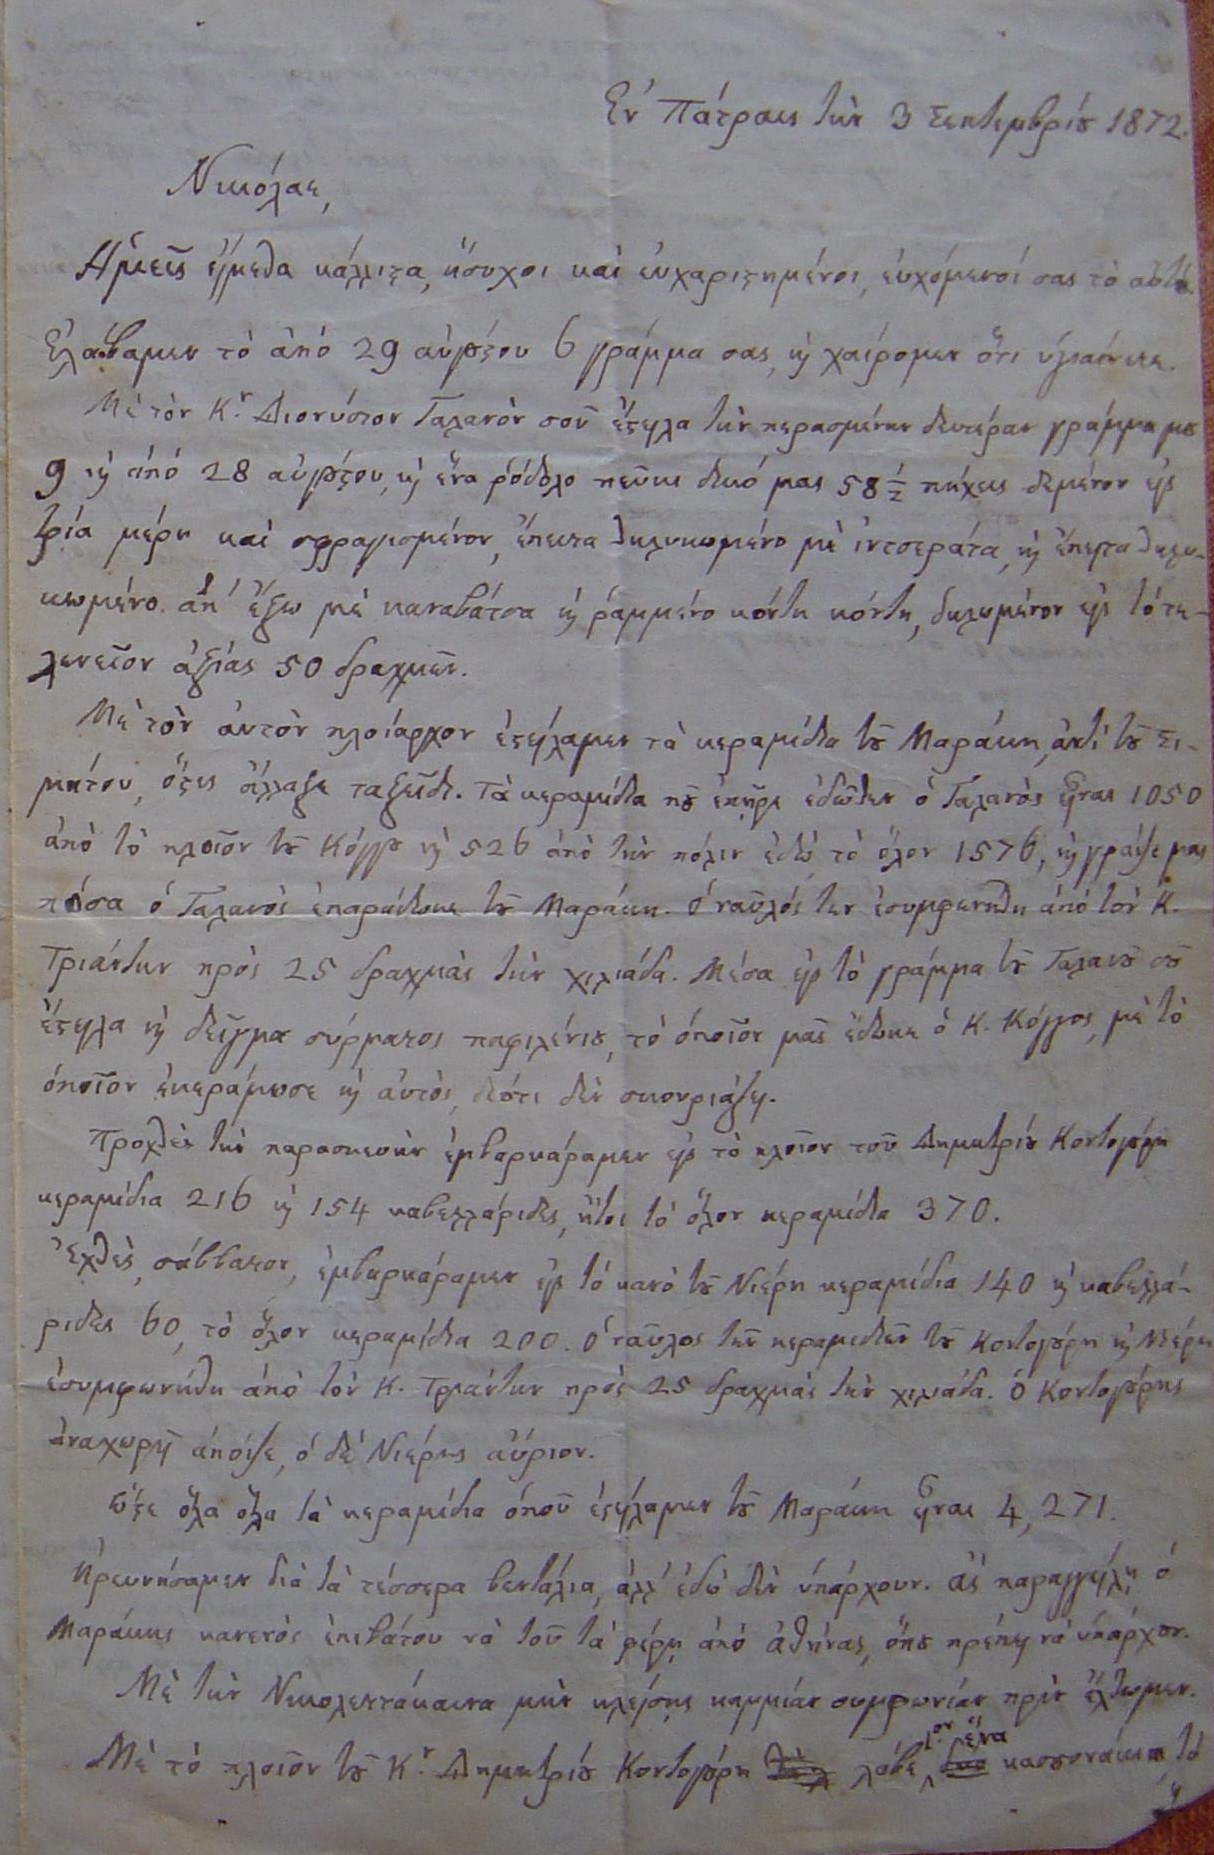 Ἐν Πάτραις τὴν 3 Σεπτεμβρίου 1872.
Νικόλαε,
Ἡμεῖς εἴμεθα κάλλιστα, ἥσυχοι καὶ εὐχαριστημένοι, εὐχόμενοί σας τὸ αὐτό.
Ἐλάβαμεν τὸ ἀπό 29 αὐγούστου 6 γράμμα σας, καὶ χαίρομεν ὅτι ὑγιαίνετε.
Μὲ τὸν Κ.ʳ Διονύσιον Γαλανὸν σοῦ ἔστειλα τὴν περασμένην δευτέραν γράμμα μου
9 καὶ ἀπό 28 αὐγούστου, καὶ ἕνα ῥόδολο πεῦκι δικό μας 58 1/2 πήχεις δεμένον εἰς
τρία μέρη καὶ σφραγισμένον, ἔπειτα θηλυκωμένο μὲ ἰντσεράτα, καὶ ἔπειτα θηλυ-
κωμένο ἀπ' ἔξω μὲ καναβάτσα καὶ ῥαμμένο κόντη κόντη, δηλωμένον εἰς τὸ τε-
λωνεῖον ἀξίας 50 δραχμῶν.
Μὲ τὸν αὐτὸν πλοίαρχον ἐστείλαμεν τὰ κεραμίδια τοῦ Μαράκη, ἀντὶ τοῦ Στ-
μάτου, ὅστις ἄλλαξε ταξεῖδι. Τὰ κεραμίδια ποῦ ἐπῆρε ἐδῶθεν ὁ Γαλανὸς εἶναι 1050
ἀπὸ τὸ πλοῖον τοῦ Κόγγου καὶ 526 ἀπὸ τὴν πόλιν ἐδώ, τὸ ὅλον 1576, καὶ γράψε μας
πόσα ὁ Γαλανὸς ἐπαράδωκε τοῦ Μαράκη. Ὁ ναῦλός των ἐσυμφωνήθη ἀπὸ τὸν Κ.
Τριάντην πρὸς 25 δραχμὰς τὴν χιλιάδα. Μέσα εἰς τὸ γράμμα τοῦ Γαλανοῦ σοῦ
ἔστειλα καὶ δεῖγμα σύρματος παφιλένιου, τὸ ὁποῖον μᾶς ἔδωκε ὁ Κ. Κόγγος, μὲ τὸ
ὁποῖον ἐκεράμωσε καὶ αὐτός, διότι δὲν σκουριάζει.
Προχθὲς τὴν παρασκευὴν ἐμβαρκάραμεν εἰς τὸ πλοῖον τοῦ Δημητρίου Κοντογούρη
κεραμίδια 216 καὶ 154 καβελλάριδες, ἤτοι τὸ ὅλον κεραμίδια 370.
Ἐχθὲς, σάββατον, ἐμβαρκάραμεν εἰς τὸ καΐκι τοῦ Νιέρη κεραμίδια 140 καὶ καβελλά-
ριδες 60, τὸ ὅλον κεραμίδια 200. Ὁ ναῦλος τῶν κεραμιδιῶν τοῦ Κοντογούρη καὶ Νιέρη
ἐσυμφωνήθη ἀπὸ τὸν Κ. Τριάντην πρὸς 25 δραχμὰς τὴν χιλιάδα. Ὁ Κοντογούρης
ἀναχωρεῖ ἀπόψε, ὁ δὲ Νιέρης αὔριον.
Ὥστε ὅλα ὅλα τὰ κεραμίδια ὁποῦ ἐστείλαμεν τοῦ Μαράκη εἶναι 4,271.
Ἠρευνήσαμεν διὰ τὰ τέσσερα βεντάλια, ἀλλ' ἐδὼ δὲν ὑπάρχουν. Ἂς παραγγείλῃ ὁ
Μαράκης κανενὸς ἐπιβάτου νὰ τοῦ τὰ φέρῃ ἀπὸ Ἀθήνας, ὅπου πρέπει νὰ ὑπάρχουν.
Μὲ τὴν Νικολεττάκαινα μὴν κλείσῃς καμμίαν συμφωνίαν πρὶν ἔλθωμεν.
Μὲ τὸ πλοῖον τοῦ Κ.ʳ Δημητρίου Κοντογούρη λάβε, 1.ον ἕνα κασσονάκι, τὸ